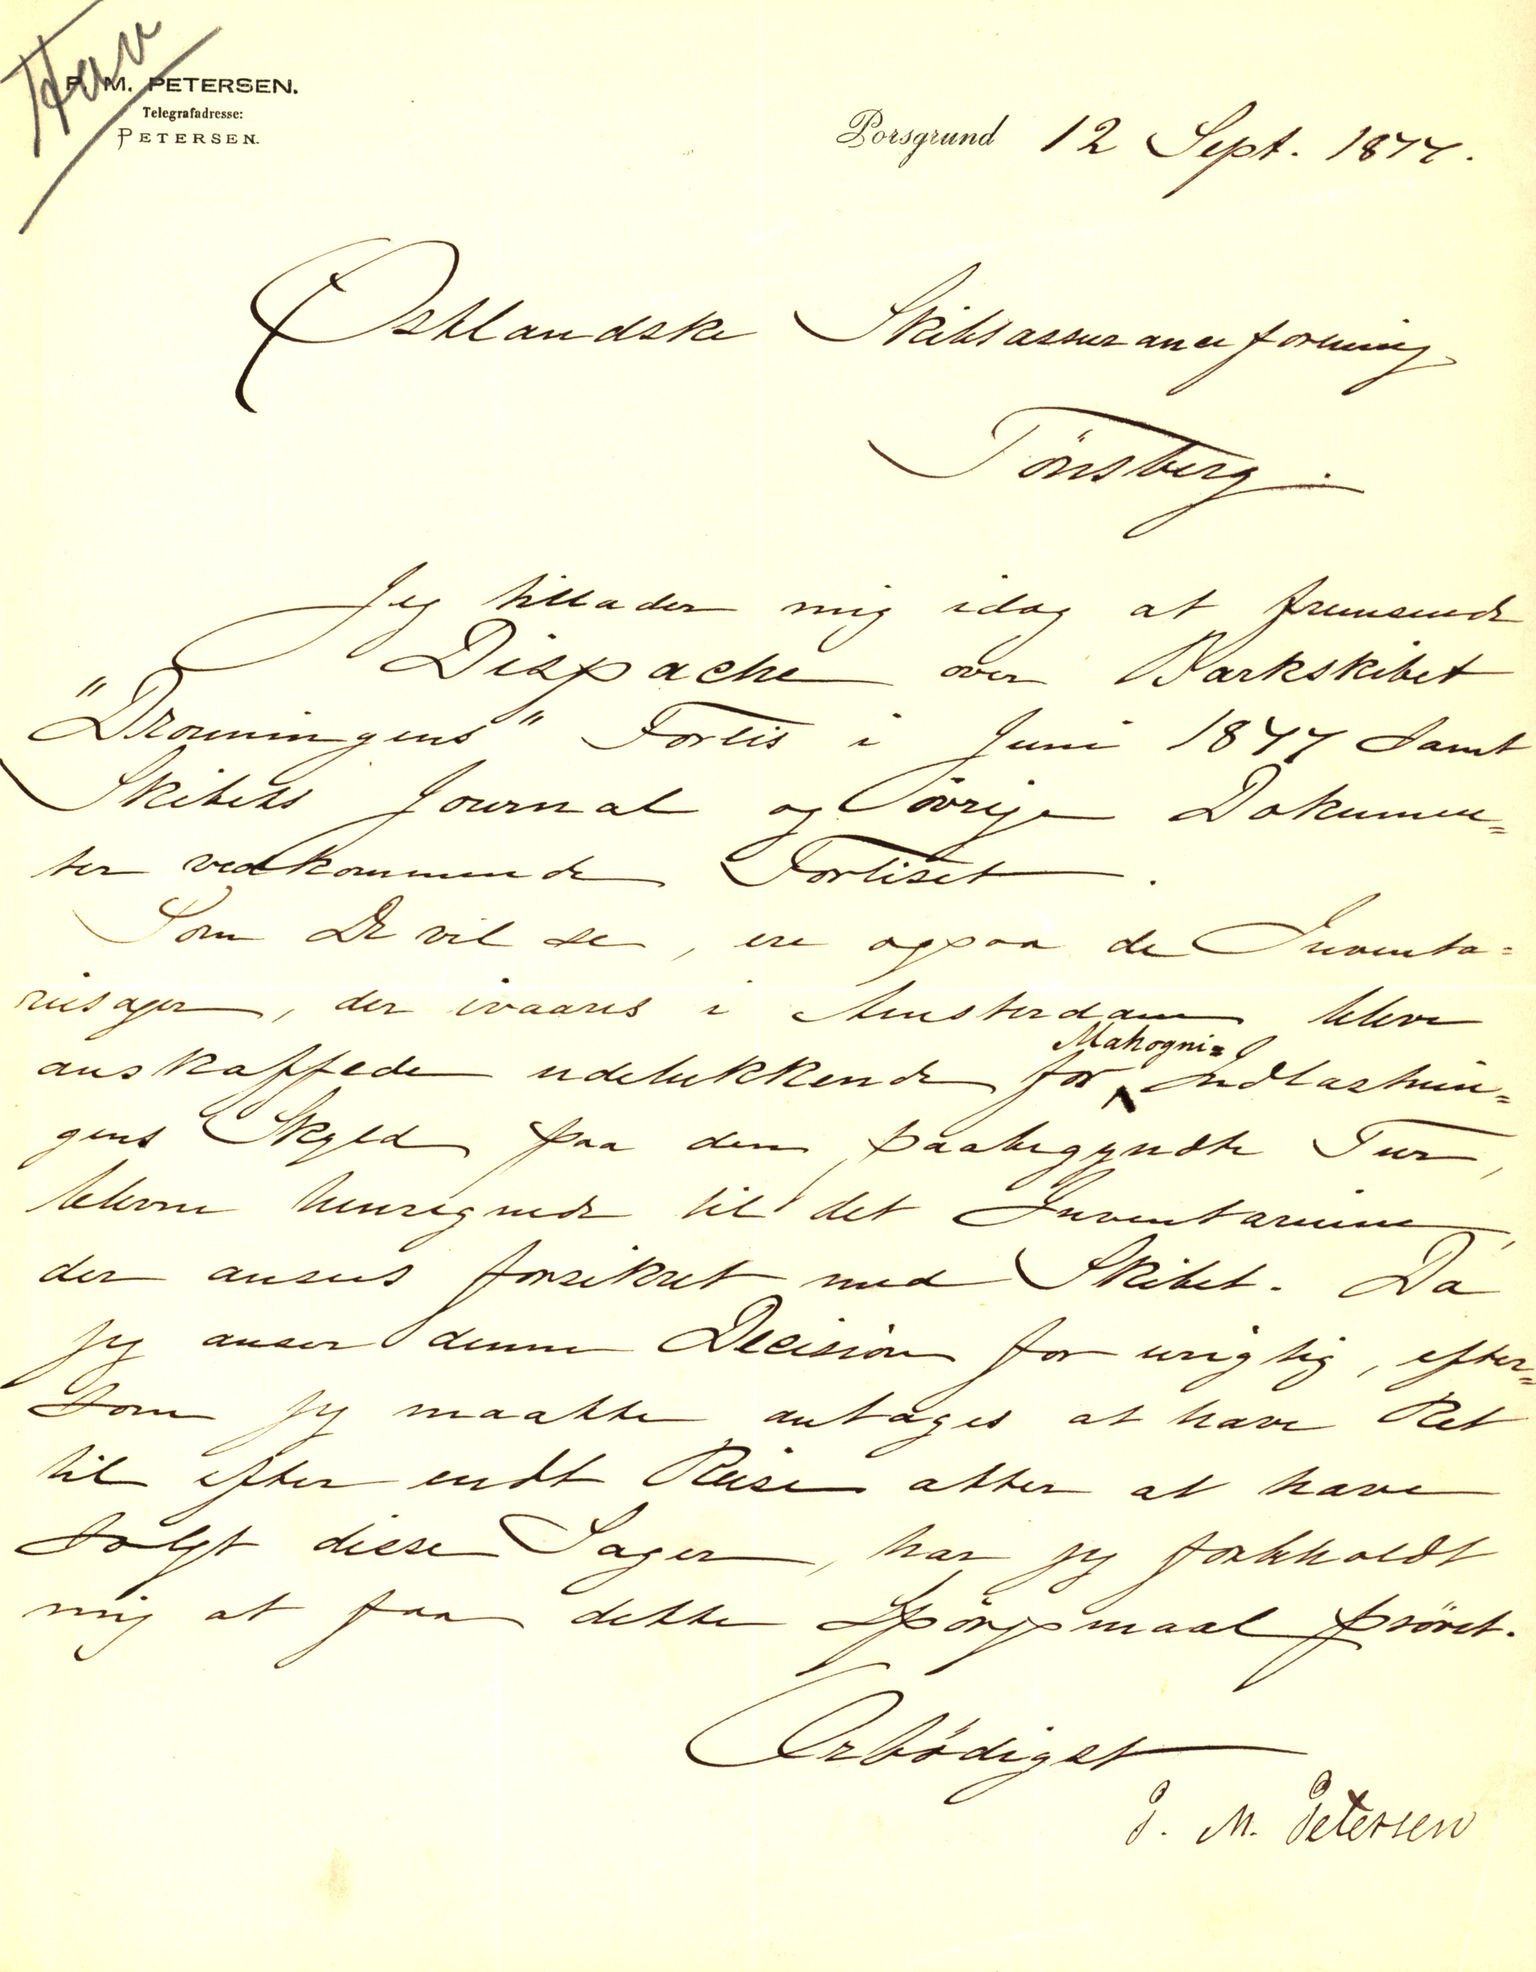 Hav
P. M. PETERSEN.
Telegrafadresse:
PETERSEN.
Porsgrund 12 Sept. 1877.
Østlandske Skibsassuranceforening
Tönsberg.
Jeg tillader mig idag at fremsende
Dispache over Barkskibet
"Dronningens" Forlis i Juni 1877 samt
Skibets Journal og övrige Dokumen=
ter vedkommende Forliset.
Som De vil se, ere ogsaa de Inventa=
riesager, der ivaares i Amsterdam bleve
anskaffede udelukkende for Mahogni= Indlastnin=
gens Skyld paa den paabegyndte Tur,
blevne henregnede til det Inventarium,
der ansees forsikret med Skibet. Da
jeg anser denne Decision for urigtig, efter=
som jeg maatte antages at have Ret
til efter endt Reise atter at have
solgt disse Sager, har jeg forbeholdt
mig at faa dette Spörgsmaal prövet.
Ærbödigst
P. M. Petersen